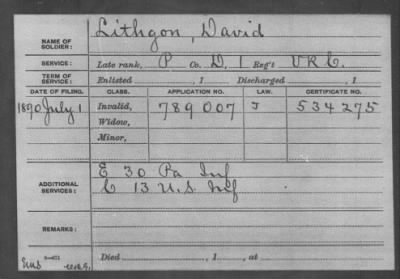 NAME OF SOLDIER: Lithgon, David
SERVICE: Late rank, P Co. D, 1 Reg't V R C.
TERM OF SERVICE: Enlisted , 1 Discharged , 1
DATE OF FILING. CLASS. APPLICATION NO. LAW. CERTIFICATE NO.
1890 July 1 Invalid, 789007 J 534275
Widow,
Minor,
E 30 Pa Inf
ADDITIONAL SERVICES: C 13 U.S. Inf
REMARKS:
Died , 1 , at